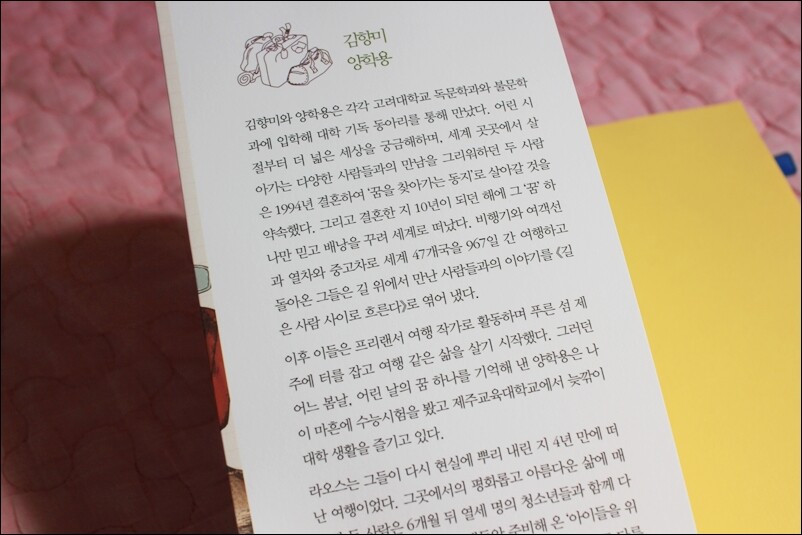 김향미
양학용
김향미와 양학용은 각각 고려대학교 독문학과와 불문학
과에 입학해 대학 기독 동아리를 통해 만났다. 어린 시
절부터 더 넓은 세상을 궁금해하며, 세계 곳곳에서 살
아가는 다양한 사람들과의 만남을 그리워하던 두 사람
은 1994년 결혼하여 ‘꿈을 찾아가는 동지’로 살아갈 것을
약속했다. 그리고 결혼한 지 10년이 되던 해에 그 ‘꿈’ 하
나만 믿고 배낭을 꾸려 세계로 떠났다. 비행기와 여객선
과 열차와 중고차로 세계 47개국을 967일 간 여행하고
돌아온 그들은 길 위에서 만난 사람들과의 이야기를 《길
은 사람 사이로 흐른다》로 엮어 냈다.
이후 이들은 프리랜서 여행 작가로 활동하며 푸른 섬 제
주에 터를 잡고 여행 같은 삶을 살기 시작했다. 그러던
어느 봄날, 어린 날의 꿈 하나를 기억해 낸 양학용은 나
이 마흔에 수능시험을 봤고 제주교육대학교에서 늦깎이
대학 생활을 즐기고 있다.
라오스는 그들이 다시 현실에 뿌리 내린 지 4년 만에 떠
난 여행이었다. 그곳에서의 평화롭고 아름다운 삶에 매
두 사람은 6개월 뒤 열세 명의 청소년들과 함께 다
준비해 온 ‘아이들을 위